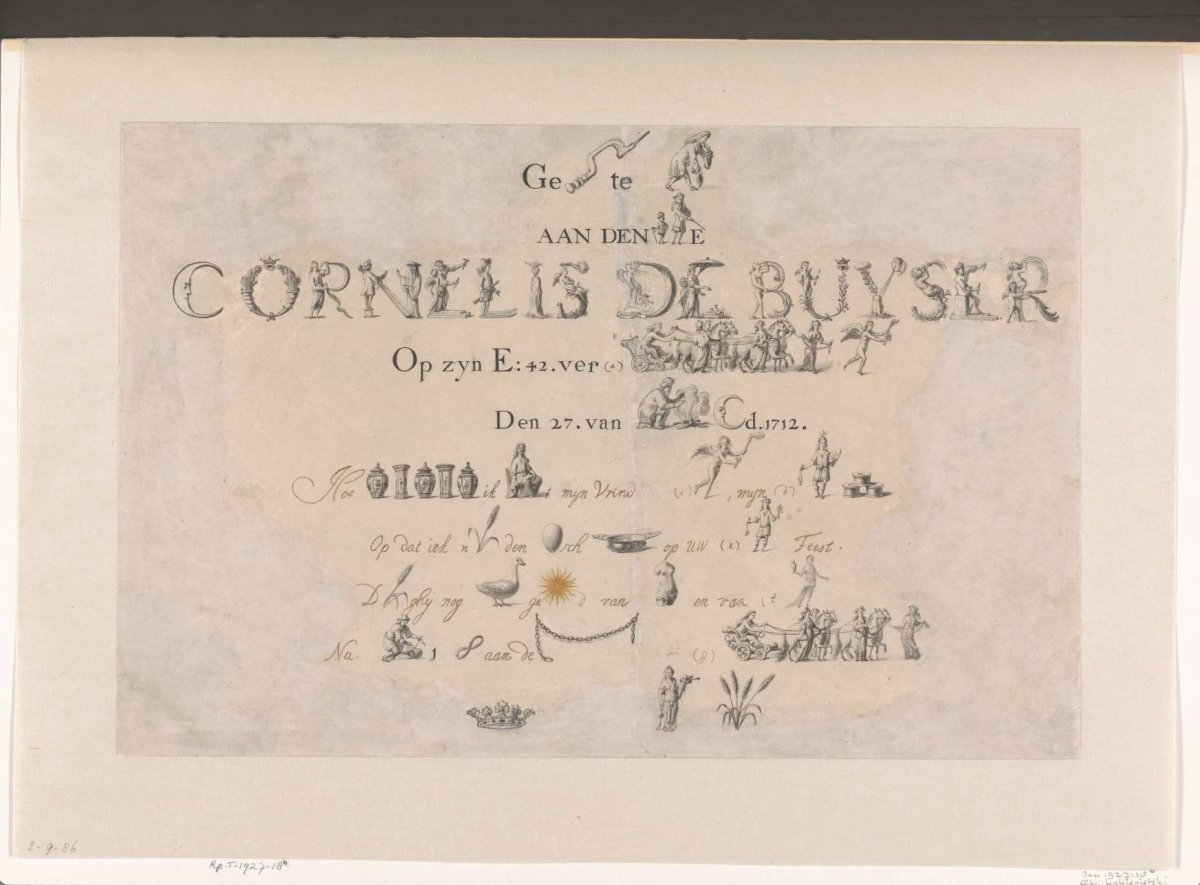 Ge te
AAN DEN E
CORNELIS DE BUYSER
Op zyn E: 42. ver (4)
Den 27. van Cd. 1712.
Hoe ik mijn Vrind , mijn
Op dat iek n' den sch op uw (e) Feest.
D ghy nog ge d van en van 't
Na 1 8 aan de (g)
2-9-86
Rp-T-1927-18b